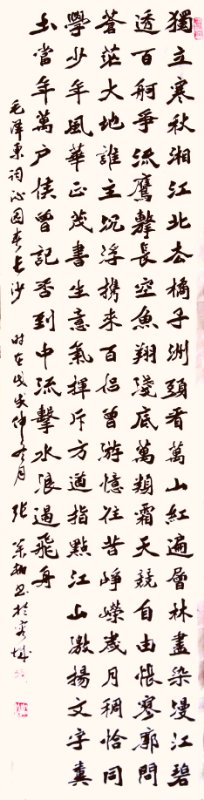 獨立寒秋湘江北去橘子洲頭看萬山紅遍層林盡染漫江碧
透百舸爭流鷹擊長空魚翔淺底萬類霜天競自由悵寥廓問
蒼茫大地誰主沉浮携來百侶曾游憶往昔崢嶸歲月稠恰同
學少年風華正茂書生意氣揮斥方遒指點江山激揚文字糞
土當年萬户侯曾記否到中流擊水浪遏飛舟
毛澤東詞沁园春長沙 时在戊戌仲月 張書於城